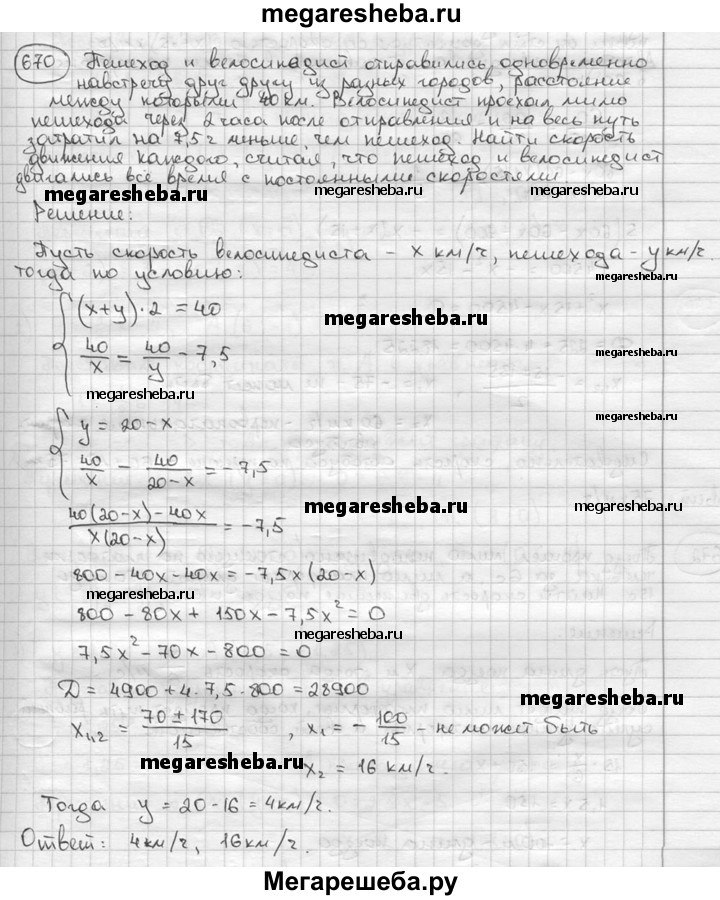 megaresheba.ru
670 Пешеход и велосипедист отправились одновременно
навстречу друг другу из разных городов, расстояние
между которыми 40 км. Велосипедист проехал мимо
пешехода через 2 часа после отправления и на весь путь
затратил на 7,5 г меньше, чем пешеход. Найти скорость
движения каждого, считая, что пешеход и велосипедист
двигались всё время с постоянными скоростями
megaresheba.ru megaresheba.ru megaresheba.ru
Решение:
Пусть скорость велосипедиста – x км/ч, пешехода – y км/ч.
тогда по условию:
megaresheba.ru
(x+y)·2 = 40
megaresheba.ru
40/x = 40/y – 7,5
megaresheba.ru
megaresheba.ru
megaresheba.ru
y = 20 – x
40/x – 40/(20–x) = –7,5
megaresheba.ru
megaresheba.ru
(40(20–x) – 40x)/(x(20–x)) = –7,5
800 – 40x – 40x = –7,5x(20–x)
megaresheba.ru
megaresheba.ru
800 – 80x + 150x – 7,5x² = 0
megaresheba.ru
7,5x² – 70x – 800 = 0
Д = 4900 + 4·7,5·800 = 28900
megaresheba.ru
x₁,₂ = (70 ± 170)/15, x₁ = –100/15 – не может быть
megaresheba.ru
x₂ = 16 км/ч.
Тогда y = 20 – 16 = 4 км/ч.
Ответ: 4 км/ч, 16 км/ч.
Мегарешеба.ру